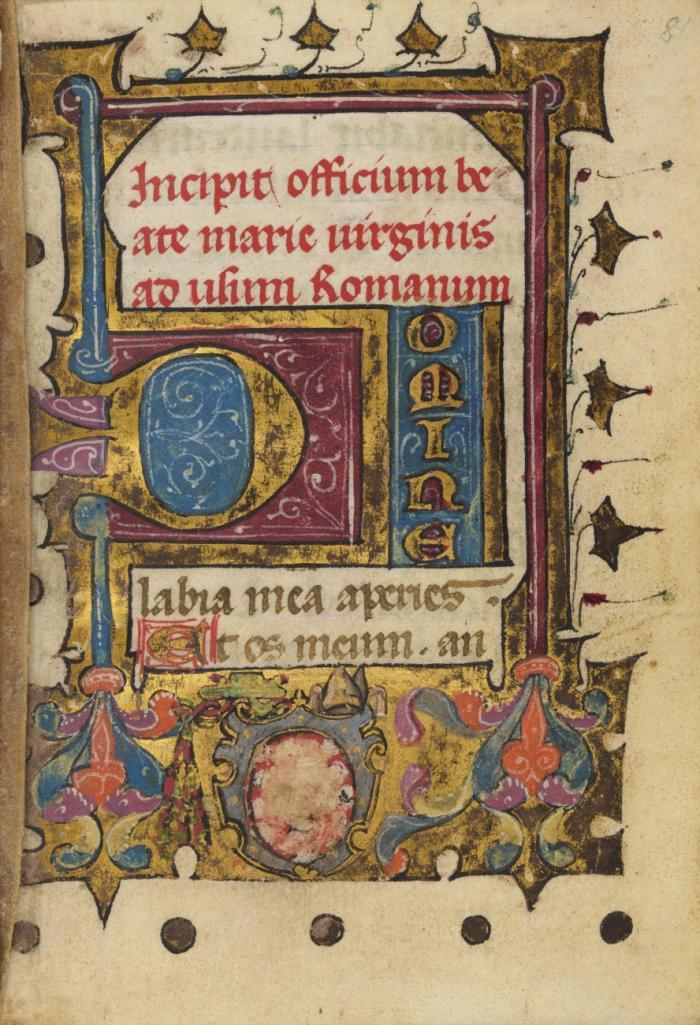 Incipit officium be
ate marie uirginis
ad usum Romanum
DOMINE
labia mea aperies.
Et os meum. an